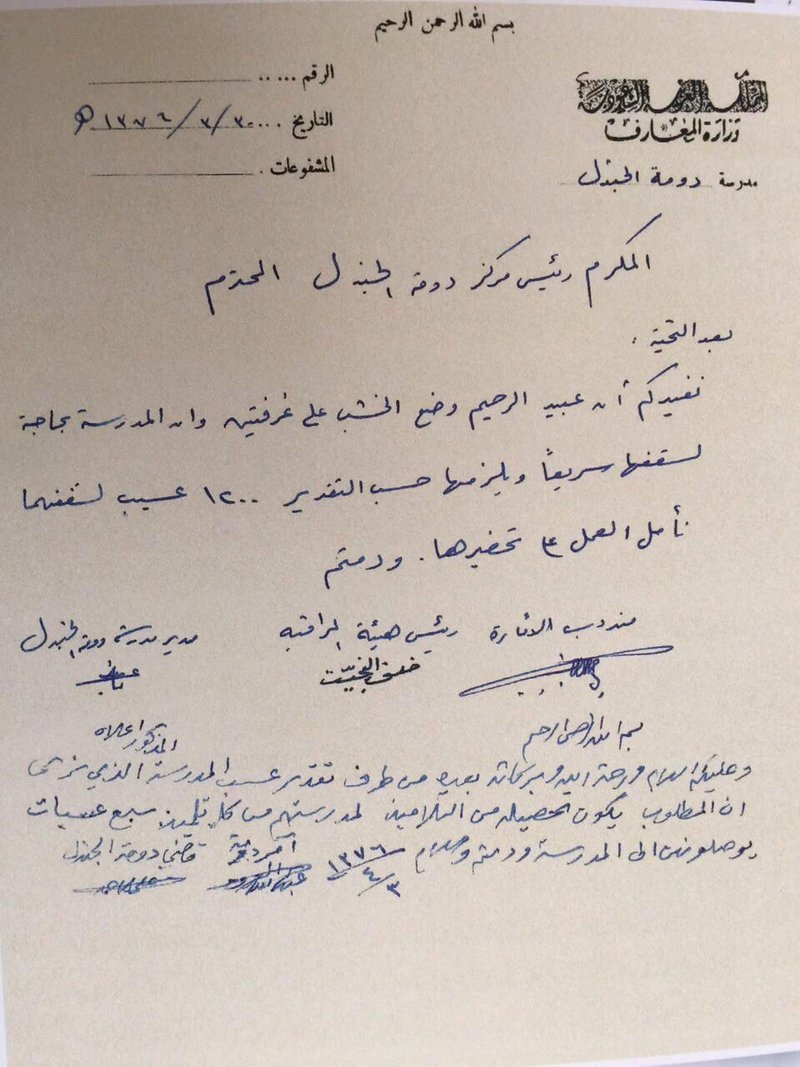 بسم الله الرحمن الرحيم
المملكة العربية السعودية
وزارة المعارف
مدرسة دومة الجندل
الرقم
التاريخ ٣٠/٣/١٣٧٦ هـ
المشفوعات
المكرم رئيس مركز دومة الجندل المحترم
بعد التحية
نفيدكم أن عبيد الرحيم وضع الخشب على غرفتين وان المدرسة بحاجة
لسقفها سريعاً ويلزمها حسب التقدير ١٢٠٠ عسيب لسقفهما
نأمل العمل على تحضيرها. ودمتم
مندوب الامارة رئيس هيئة المراقبه مدير مدرسة دومة الجندل
بسم الله الرحمن الرحيم
المذكور اعلاه
وعليكم السلام ورحمة الله وبركاته بعده من طرف تقدير عسب المدرسة الذي نرى
ان المطلوب يكون تحصيله من التلاميذ لمدرستهم من كل تلميذ سبع عسبات
يوصلونهن الى المدرسة ودمتم والسلام ٣/٤/١٣٧٦ قاضي دومة الجندل